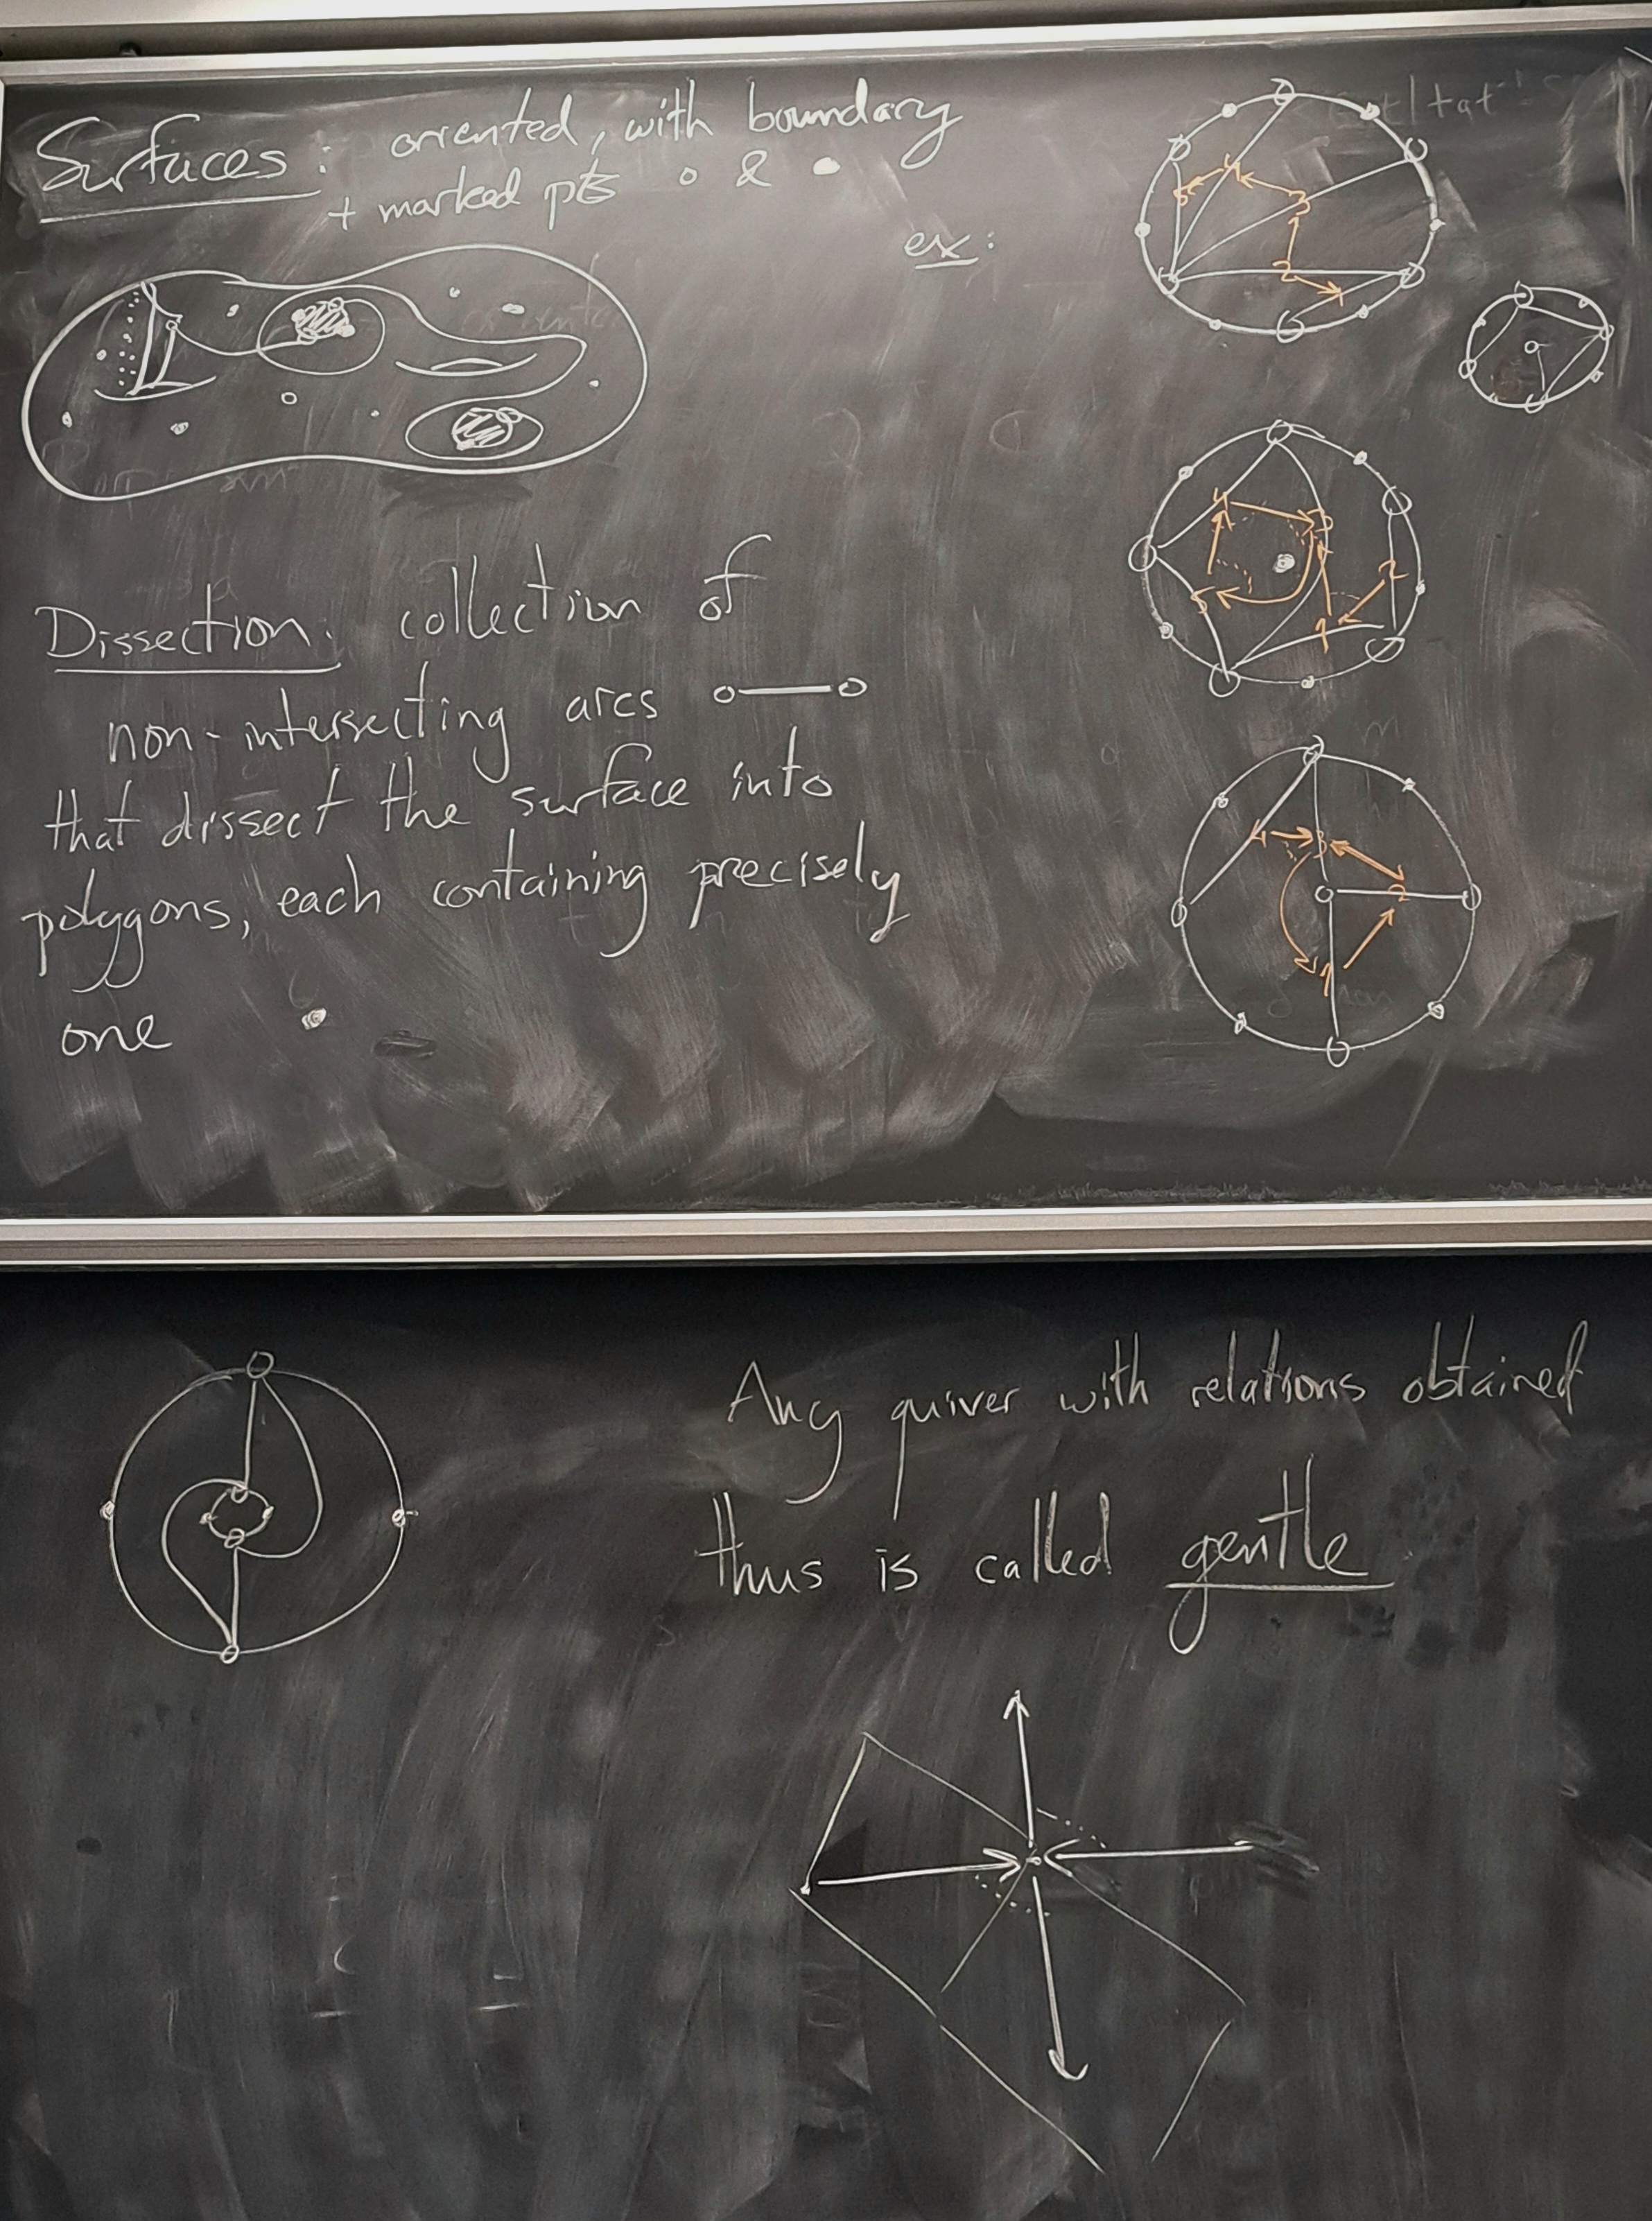 Surfaces: oriented, with boundary
+ marked pts ○ & ●
ex:
5 4 3 2 1
4 3 5 2 1
Dissection: collection of
non-intersecting arcs ○—○
that dissect the surface into
polygons, each containing precisely
one ●
4 3 2 1
Any quiver with relations obtained
thus is called gentle